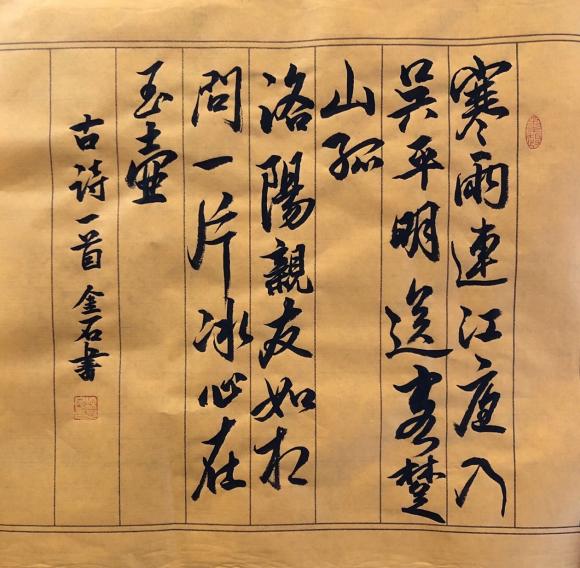 寒雨連江夜入
吳平明送客楚
山孤
洛陽親友如相
問一片冰心在
玉壺
古詩一首 金石書